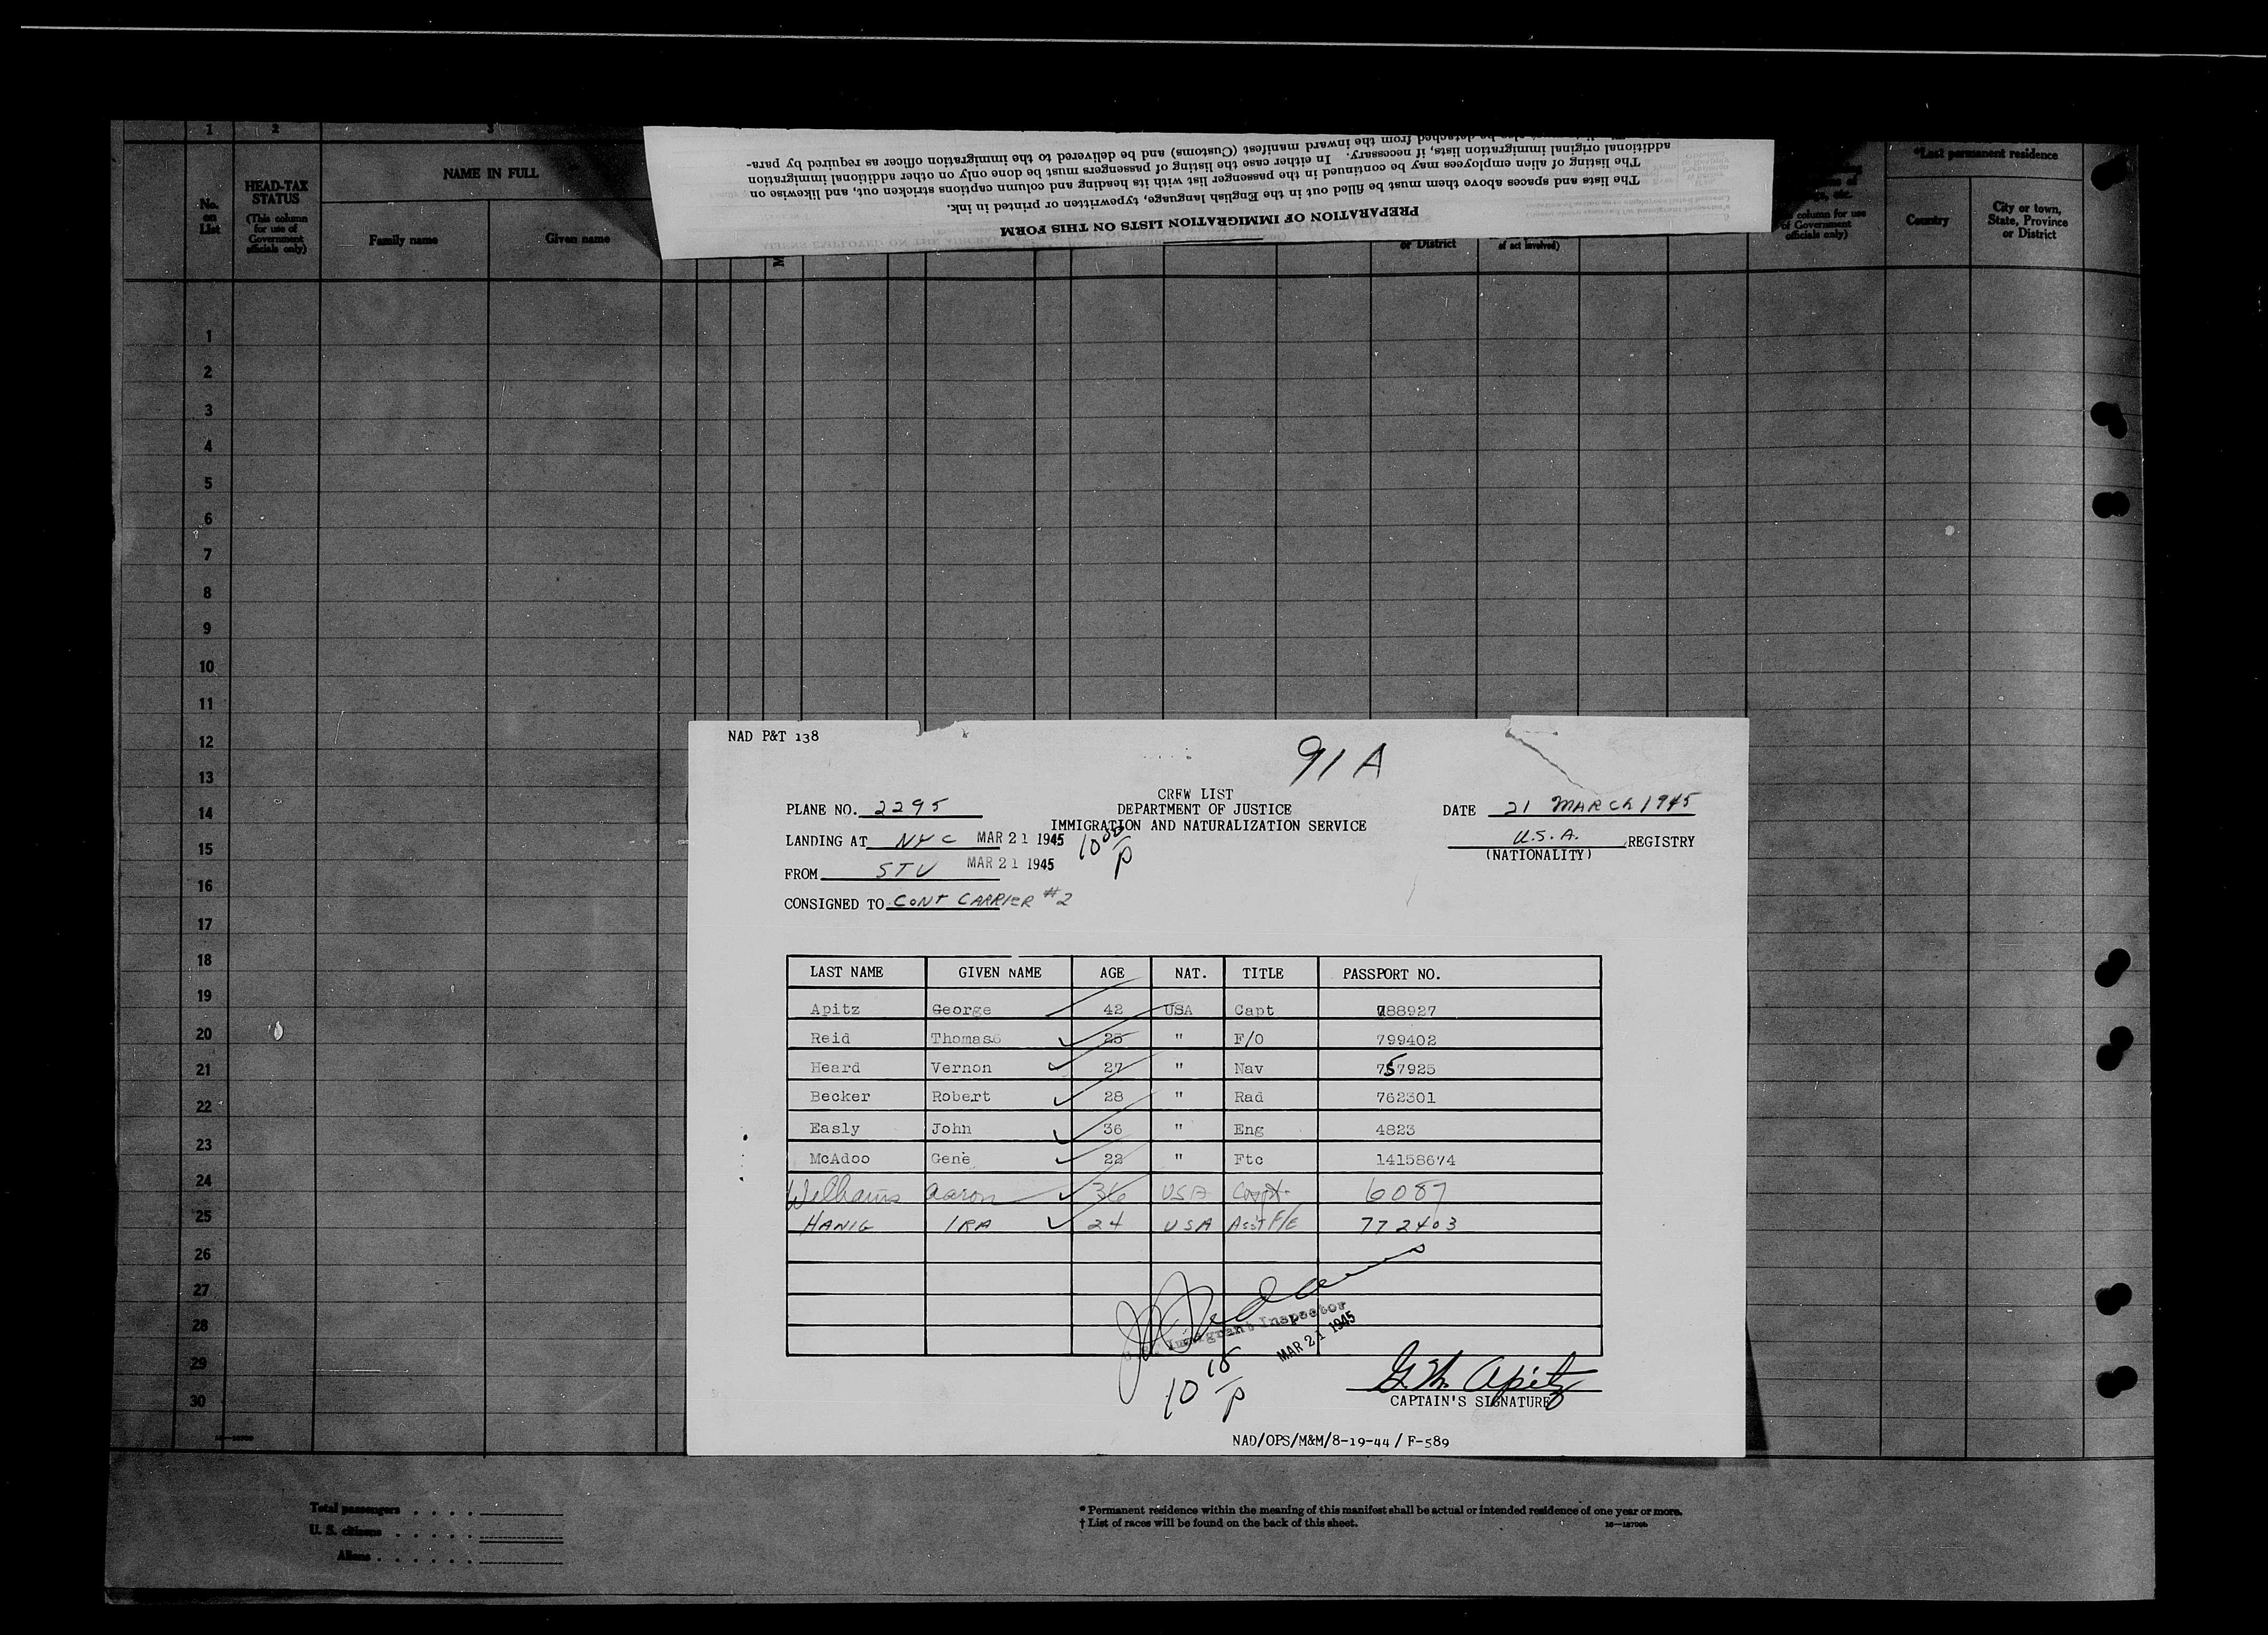 1 2 3
No. on List
HEAD-TAX STATUS
(This column for use of Government officials only)
NAME IN FULL
Family name Given name
PREPARATION OF IMMIGRATION LISTS ON THIS FORM
The lists and spaces above them must be filled out in the English language, typewritten or printed in ink.
The listing of alien employees may be continued in the passenger list with its heading and column captions stricken out, and likewise on
additional original immigration lists, if necessary. In either case the listing of passengers must be done only on other additional immigration
from the inward manifest (Customs) and be delivered to the immigration officer as required by para-
or District
of act involved)
column for use of Government officials only)
*Last permanent residence
Country
City or town, State, Province or District
1
2
3
4
5
6
7
8
9
10
11
12
13
14
15
16
17
18
19
20
21
22
23
24
25
26
27
28
29
30
NAD P&T 138
91 A
CREW LIST
PLANE NO. 2295 DEPARTMENT OF JUSTICE DATE 21 MARCH 1945
IMMIGRATION AND NATURALIZATION SERVICE
LANDING AT NYC MAR 21 1945 10 00/P U.S.A. REGISTRY
(NATIONALITY)
FROM STV MAR 21 1945
CONSIGNED TO CONT CARRIER #2
LAST NAME GIVEN NAME AGE NAT. TITLE PASSPORT NO.
Apitz George 42 USA Capt 788927
Reid Thomas 25 " F/O 799402
Heard Vernon 27 " Nav 757925
Becker Robert 28 " Rad 762301
Easly John 36 " Eng 4823
McAdoo Gene 22 " Ftc 14158674
Williams Aaron 36 USA Capt. 6087
HANIG IRA 24 USA Asst F/E 772403
Immigrant Inspector
MAR 21 1945
10 15/P
G. W. Apitz
CAPTAIN'S SIGNATURE
NAD/OPS/M&M/8-19-44/ F-589
Total passengers
U. S. citizens
Aliens
* Permanent residence within the meaning of this manifest shall be actual or intended residence of one year or more.
† List of races will be found on the back of this sheet.